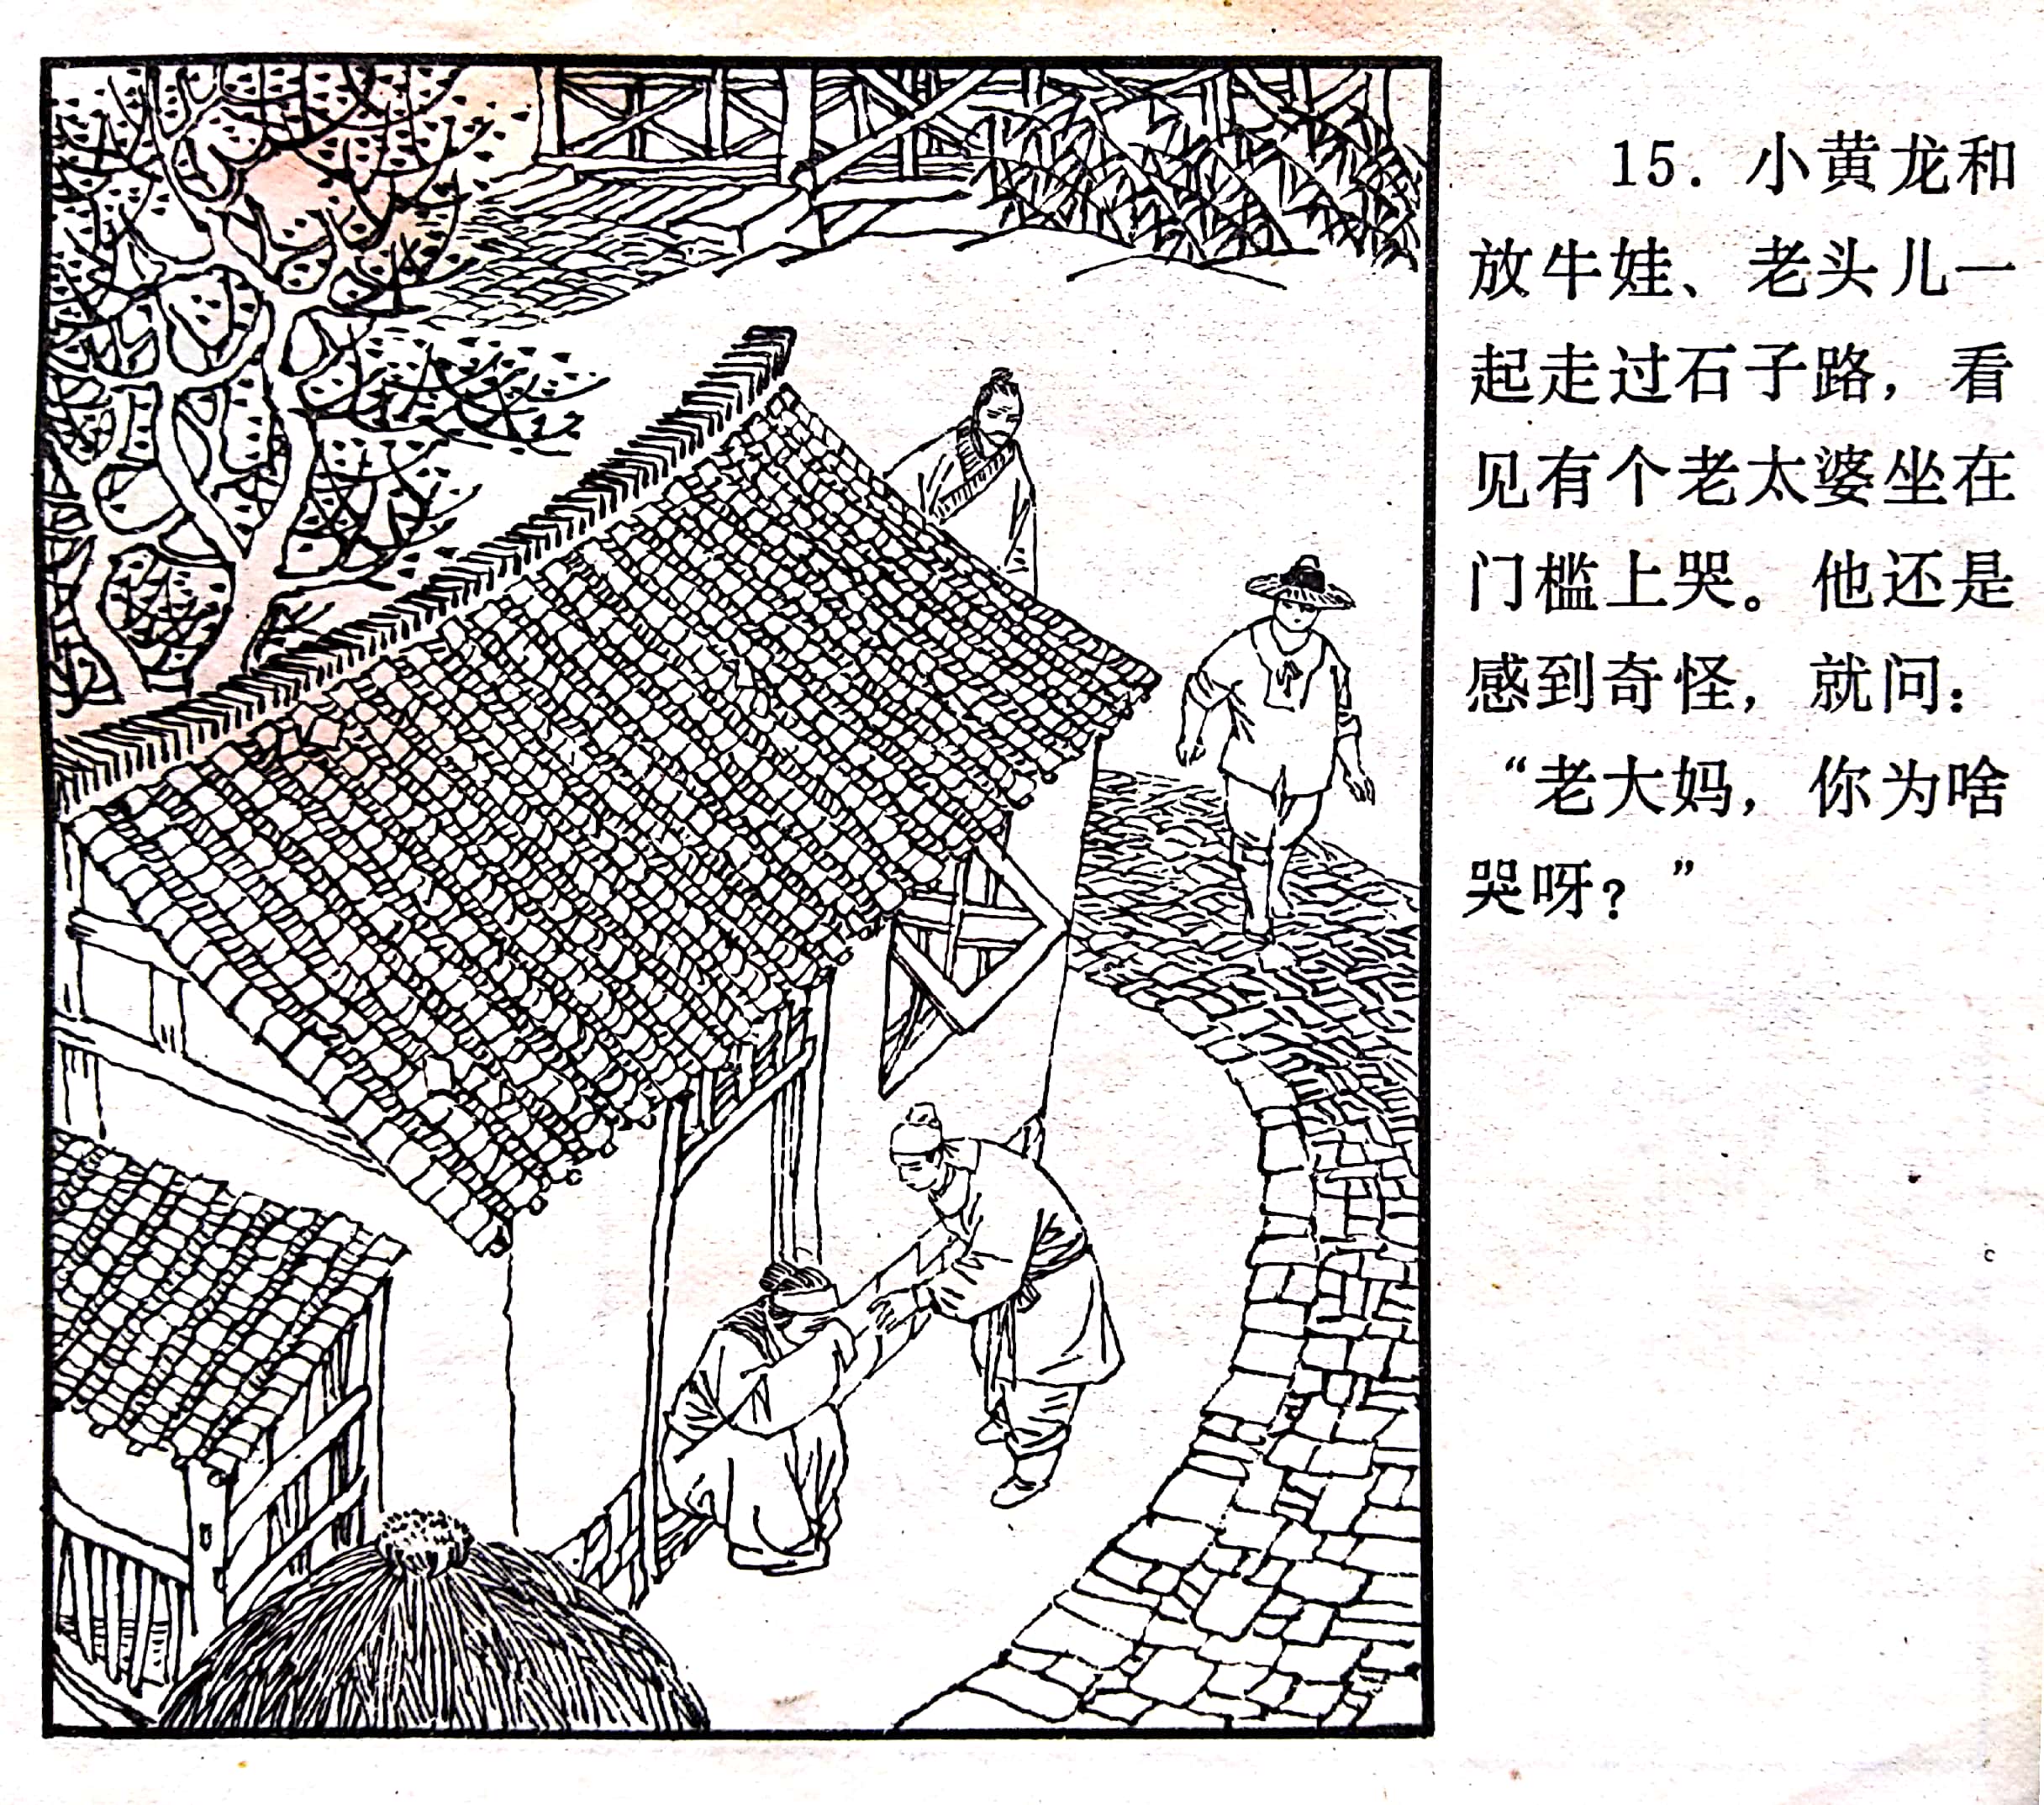 15. 小黄龙和
放牛娃、老头儿一
起走过石子路，看
见有个老太婆坐在
门槛上哭。他还是
感到奇怪，就问：
“老大妈，你为啥
哭呀？”